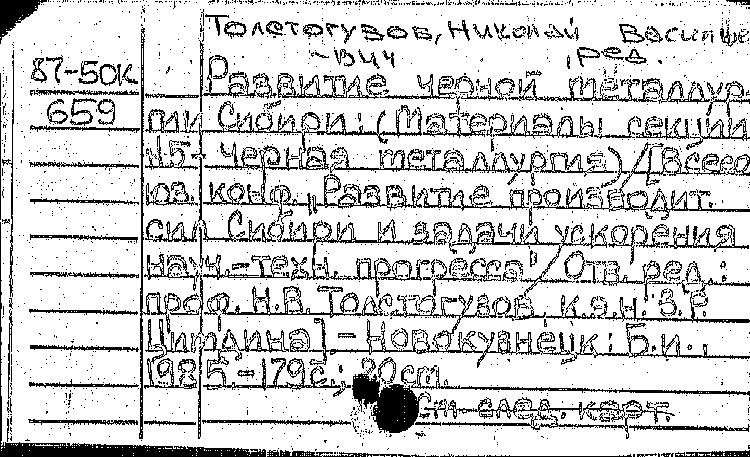 Толстогузов, Николай Василье-
-вич, ред.
87-50К Развитие черной металлур-
659 гии Сибири: (Материалы секции
N5- Черная металлургия) / [Всесо
юз. конф. "Развитие производит.
сил Сибири и задачи ускорения
науч.-техн. прогресса" / Отв. ред.:
проф. Н.В. Толстогузов, к.э.н. З.Р.
Цитлина]. - Новокузнецк: Б.и.,
1985.-179с.; 20см.
См след. карт.